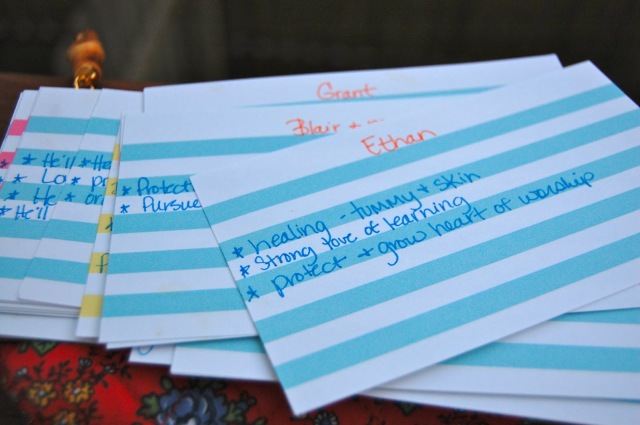 Grant
Blair +
Ethan
* healing - tummy + skin
* Strong love of learning
* protect + grow heart of worship
* Protect
* Pursue
* He'll
* He
* He'll